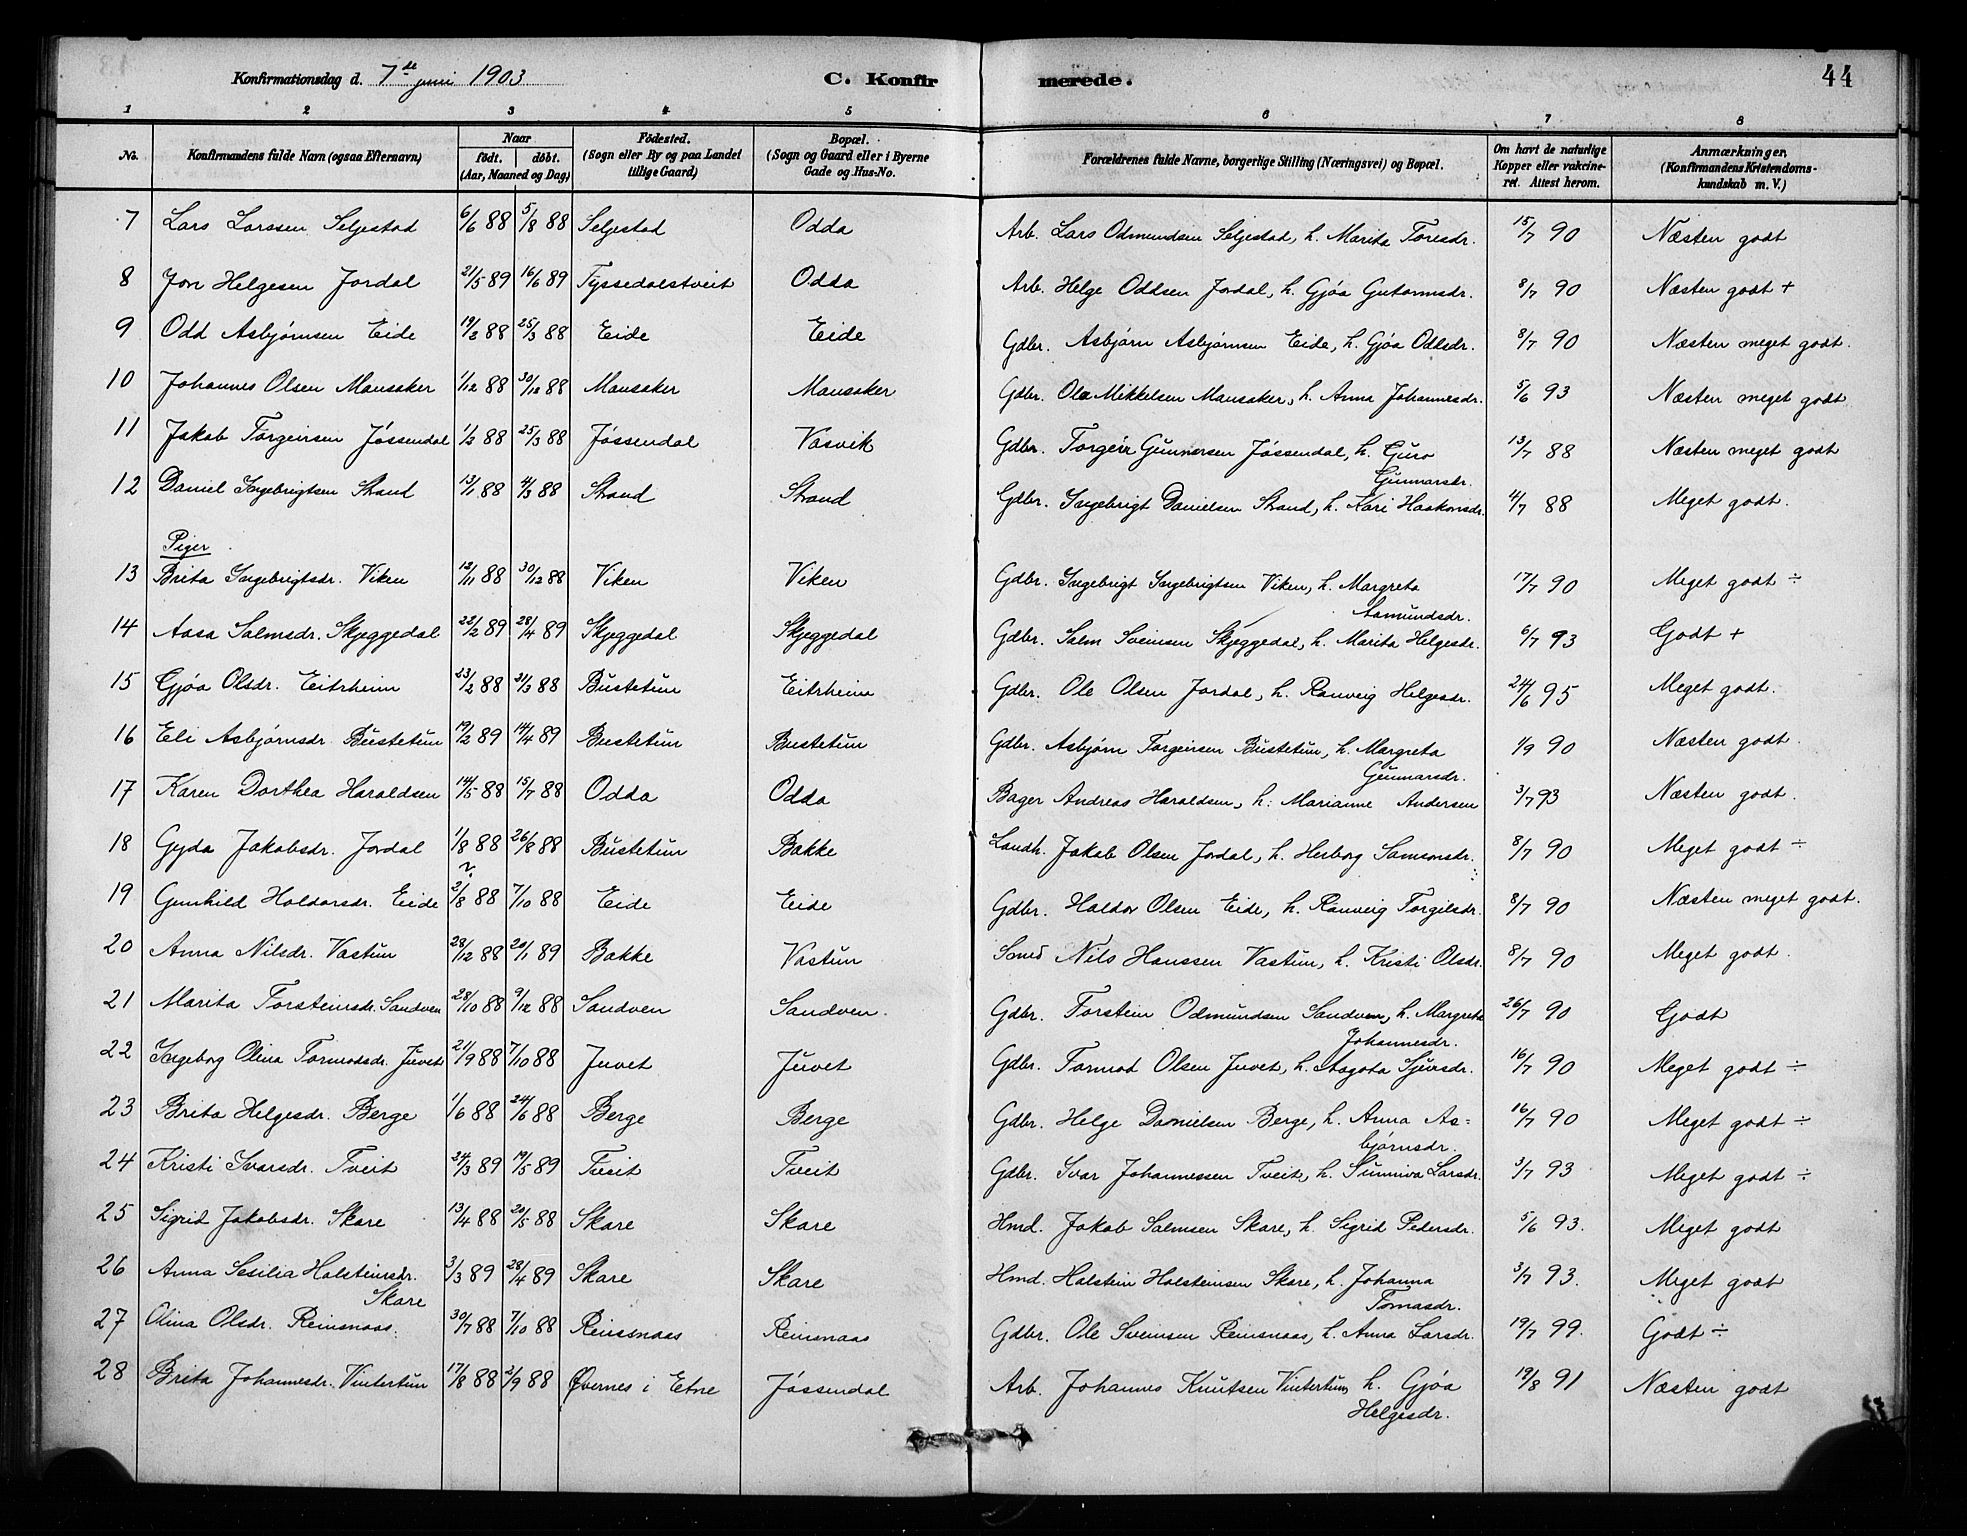 Konfirmationsdag d. 7de juni 1903 C. Konfirmerede. 44
1 2 3 4 5 6 7 8
No. Konfirmandens fulde Navn (ogsaa Efternavn) Naar födt. döbt. (Aar, Maaned og Dag) Födested. (Sogn eller By og paa Landet tillige Gaard) Bopæl. (Sogn og Gaard eller i Byerne Gade og Hus-No. Forældrenes fulde Navne, borgerlige Stilling (Næringsvei) og Bopæl. Om havt de naturlige Kopper eller vakcineret. Attest herom. Anmærkninger, (Konfirmandens Kristendomskundskab m. V.)
7 Lars Larssen Seljestad 6/6 88 5/8 88 Seljestad Odda Arb. Lars Odmundsen Seljestad, h. Marita Toresdr. 15/7 90 Næsten godt
8 Jon Helgesen Jordal 21/5 89 16/6 89 Tyssedalstveit Odda Arb. Helge Oddsen Jordal, h. Gjøa Gutormsdr. 8/7 90 Næsten godt +
9 Odd Asbjørnsen Eide 19/2 88 25/3 88 Eide Eide Gdbr. Asbjørn Asbjørnsen Eide, h. Gjøa Oddsdr. 8/7 90 Næsten meget godt.
10 Johannes Olsen Mansaker 1/12 88 30/12 88 Mansaker Mansaker Gdbr. Ola Mikkelsen Mansaker, h. Anna Johannesdr. 5/6 93 Næsten meget godt
11 Jakob Torgeirsen Jøssendal 1/2 88 25/3 88 Jøssendal Vasvik Gdbr. Torgeir Gunnarsen Jøssendal, h. Guro Gunnarsdr. 13/7 88 Næsten meget godt
12 Daniel Ingebrigtsen Strand 13/1 88 4/3 88 Strand Strand Gdbr. Ingebrigt Danielsen Strand, h. Kari Haakonsdr. 4/7 88 Meget godt.
Piger
13 Brita Ingebrigtsdr. Viken 12/11 88 30/12 88 Viken Viken Gdbr. Ingebrigt Ingebrigtsen Viken, h. Margreta Aamundsdr. 17/7 90 Meget godt ÷
14 Aasa Salmsdr. Skjeggedal 22/2 89 28/4 89 Skjeggedal Skjeggedal Gdbr. Salm Sveinsen Skjeggedal, h. Marita Helgesdr. 6/7 93 Godt +
15 Gjøa Olsdr. Eitrheim 23/2 88 31/3 88 Bustetun Eitrheim Gdbr. Ole Olsen Jordal, h. Ranveig Helgesdr. 24/6 95 Meget godt.
16 Eli Asbjørnsdr. Bustetun 19/2 89 14/4 89 Bustetun Bustetun Gdbr. Asbjørn Torgeirsen Bustetun, h. Margreta Gunnarsdr. 1/9 90 Næsten godt.
17 Karen Dorthea Haraldsen 14/5 88 15/7 88 Odda Odda Bager Andreas Haraldsen, h. Marianne Andersen 3/7 93 Næsten godt.
18 Gyda Jakobsdr. Jordal 1/8 88 26/8 88 Bustetun Bakke Landh. Jakob Olsen Jordal, h. Herborg Samsonsdr. 8/7 90 Meget godt ÷
19 Gunhild Haldorsdr. Eide 2/8 88 7/10 88 Eide Eide Gdbr. Haldor Olsen Eide, h. Ranveig Torgilsdr. 8/7 90 Næsten meget godt.
20 Anna Nilsdr. Vastun 28/12 88 20/1 89 Bakke Vastun Smed Nils Hanssen Vastun, h. Kristi Olsdr. 8/7 90 Meget godt.
21 Marita Torsteinsdr. Sandven 28/10 88 9/12 88 Sandven Sandven. Gdbr. Torstein Odmundsen Sandven, h. Margreta Johannesdr. 26/7 90 Godt
22 Ingeborg Olina Tormodsdr. Juvet 21/9 88 7/10 88 Juvet Juvet Gdbr. Tormod Olsen Juvet, h. Aagota Sjursdr. 16/7 90 Meget godt ÷
23 Brita Helgesdr. Berge 1/6 88 24/6 88 Berge Berge Gdbr. Helge Danielsen Berge, h. Anna Asbjørnsdr. 16/7 90 Meget godt ÷
24 Kristi Ivarsdr. Tveit 24/3 89 19/5 89 Tveit Tveit Gdbr. Ivar Johannessen Tveit, h. Sunniva Larsdr. 3/7 93 Meget godt ÷
25 Sigrid Jakobsdr. Skare 13/4 88 20/5 88 Skare Skare Hmd. Jakob Salmsen Skare, h. Sigrid Pedersdr. 5/6 93. Meget godt
26 Anna Sesilia Halsteinsdr. Skare 3/3 89 28/4 89 Skare Skare Hmd. Halstein Halsteinsen Skare, h. Johanna Tomasdr. 3/7 93. Meget godt
27 Olina Olsdr. Reinsnaas. 30/7 88 7/10 88 Reinsnaas Reinsnaas Gdbr. Ole Sveinsen Reinsnaas, h. Anna Larsdr. 19/7 99. Godt ÷
28 Brita Johannesdr. Vintertun 17/8 88 2/9 88 Øvernes i Etne Jøssendal Arb. Johannes Knutsen Vintertun h. Gjøa Helgesdr. 19/8 91 Næsten godt